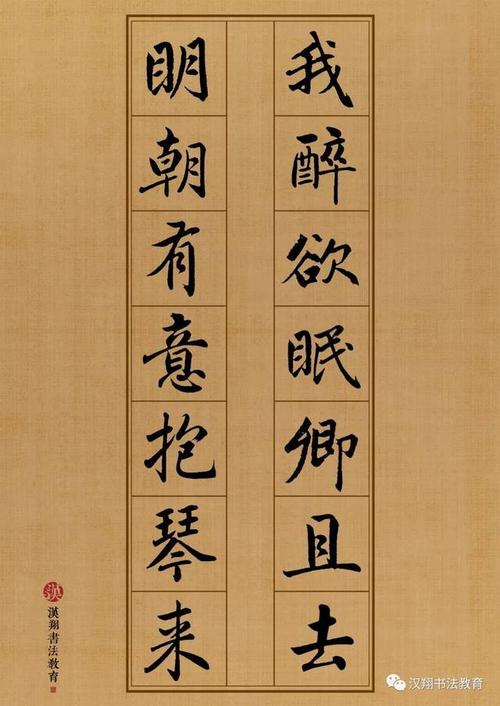 我醉欲眠卿且去
明朝有意抱琴来
漢翔書法教育
汉翔书法教育